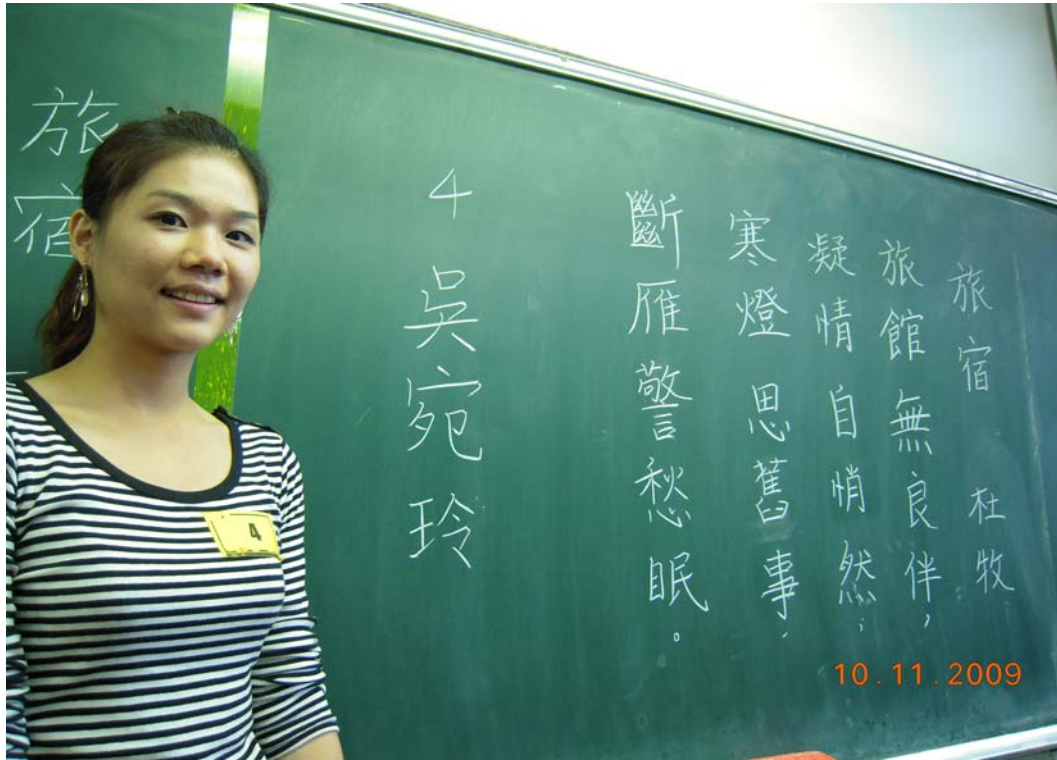 旅宿 杜牧
旅館無良伴，
凝情自悄然；
寒燈思舊事，
斷雁警愁眠。
4 吳宛玲
旅宿
4
10.11.2009